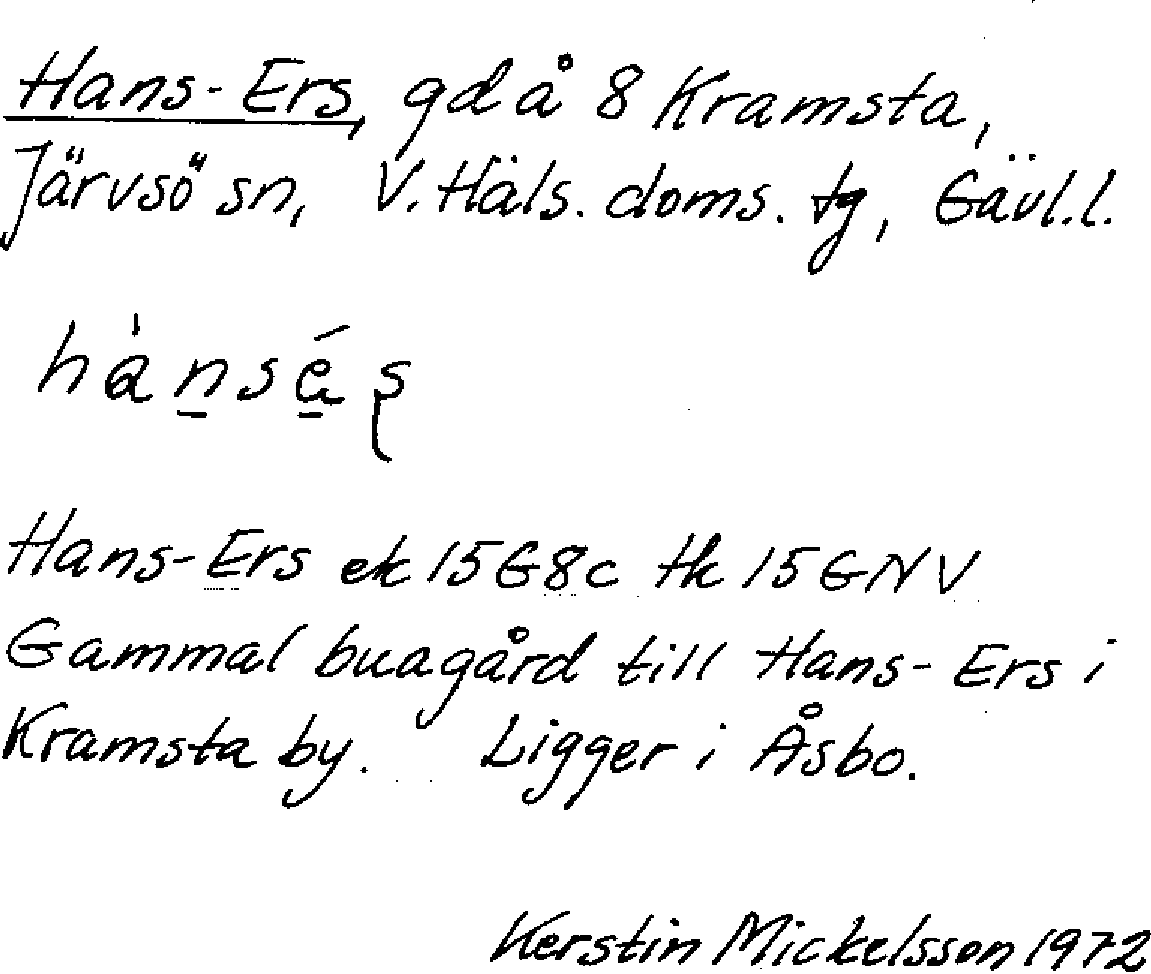 Hans-Ers, gd å 8 Kramsta,
Järvsö sn, V. Häls. doms. tg, Gävl.l.
Hans-Ers ek 15G8c tk 15GNV
Gammal buagård till Hans-Ers i
Kramsta by. Ligger i Åsbo.
Kerstin Mickelsson 1972